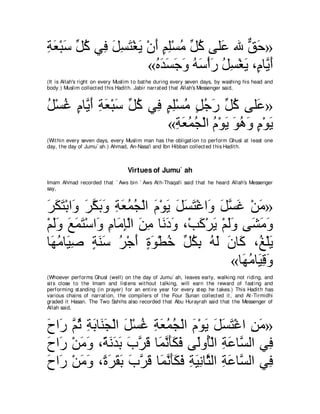 «حَقٌّ للهِ عَلَى كُلِّ مُسْلِمٍ أَنْ يَغْتَسِلَ فِي كُلِّ سَبْعَةِ
أَيَّامٍ، يَغْسِلُ رَأْسَهُ وَجَسَدَهُ»
(It is Allah's right on every Muslim to bathe during every seven days, by washing his head and
body.) Muslim collected this Hadith. Jabir narrated that Allah's Messenger said,
«عَلَى كُلِّ رَجُلٍ مُسْلِمٍ فِي كُلِّ سَبْعَةِ أَيَّامٍ غُسْلُ
يَوْمٍ وَهُوَ يَوْمُ الْجُمُعَةِ»
(Within every seven days, every Muslim man has the obligation to perform Ghusl at least one
day, the day of Jumu`ah.) Ahmad, An-Nasa'i and Ibn Hibban collected this Hadith.
Virtues of Jumu`ah
Imam Ahmad recorded that `Aws bin `Aws Ath-Thaqafi said that he heard Allah's Messenger
say,
«مَنْ غَسَّلَ وَاغْتَسَلَ يَوْمَ الْجُمُعَةِ وَبَكَّرَ وَابْتَكَرَ
وَمَشَى وَلَمْ يَرْكَبْ، وَدَنَا مِنَ الْإِمَامِ وَاسْتَمَعَ وَلَمْ
يَلْغُ، كَانَ لَهُ بِكُلِّ خُطْوَةٍ أَجْرُ سَنَةٍ صِيَامُهَا
وَقِيَامُهَا»
(Whoever performs Ghusl (well) on the day of Jumu`ah, leaves early, walking not riding, and
sits close to the Imam and listens without talking, will earn the reward of fasting and
performing standing (in prayer) for an entire year for every step he takes.) This Hadith has
various chains of narration, the compilers of the Four Sunan collected it, and At-Tirmidhi
graded it Hasan. The Two Sahihs also recorded that Abu Hurayrah said that the Messenger of
Allah said,
«مَنِ اغْتَسَلَ يَوْمَ الْجُمُعَةِ غُسْلَ الْجَنَابَةِ ثُمَّ رَاحَ
فِي السَّاعَةِ الْأُولَى، فَكَأَنَّمَا قَرَّبَ بَدَنَةً، وَمَنْ رَاحَ
فِي السَّاعَةِ الثَّانِيَةِ فَكَأَنَّمَا قَرَّبَ بَقَرَةً، وَمَنْ رَاحَ